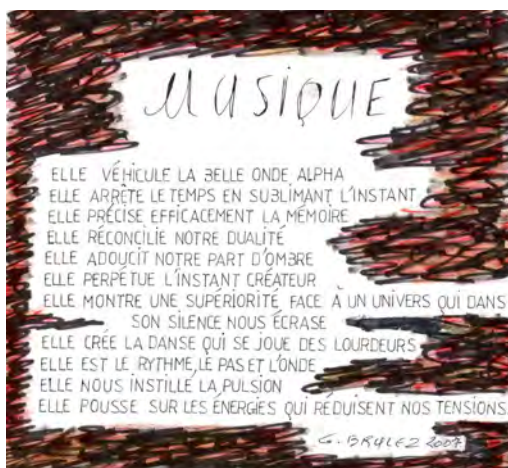 MUSIQUE
ELLE VÉHICULE LA BELLE ONDE ALPHA
ELLE ARRÊTE LE TEMPS EN SUBLIMANT L'INSTANT
ELLE PRÉCISE EFFICACEMENT LA MÉMOIRE
ELLE RÉCONCILIE NOTRE DUALITÉ
ELLE ADOUCIT NOTRE PART D'OMBRE
ELLE PERPÉTUE L'INSTANT CRÉATEUR
ELLE MONTRE UNE SUPÉRIORITÉ FACE À UN UNIVERS QUI DANS
SON SILENCE NOUS ÉCRASE
ELLE CRÉE LA DANSE QUI SE JOUE DES LOURDEURS
ELLE EST LE RYTHME, LE PAS ET L'ONDE
ELLE NOUS INSTILLE LA PULSION
ELLE POUSSE SUR LES ÉNERGIES QUI RÉDUISENT NOS TENSIONS.
G. BRULEZ 2007